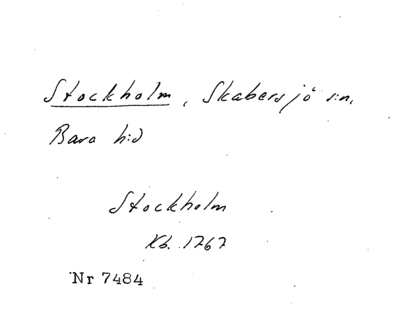 Stockholm, Skabersjö s:n,
Bara h:d
Stockholm
Kb. 1767
Nr 7484